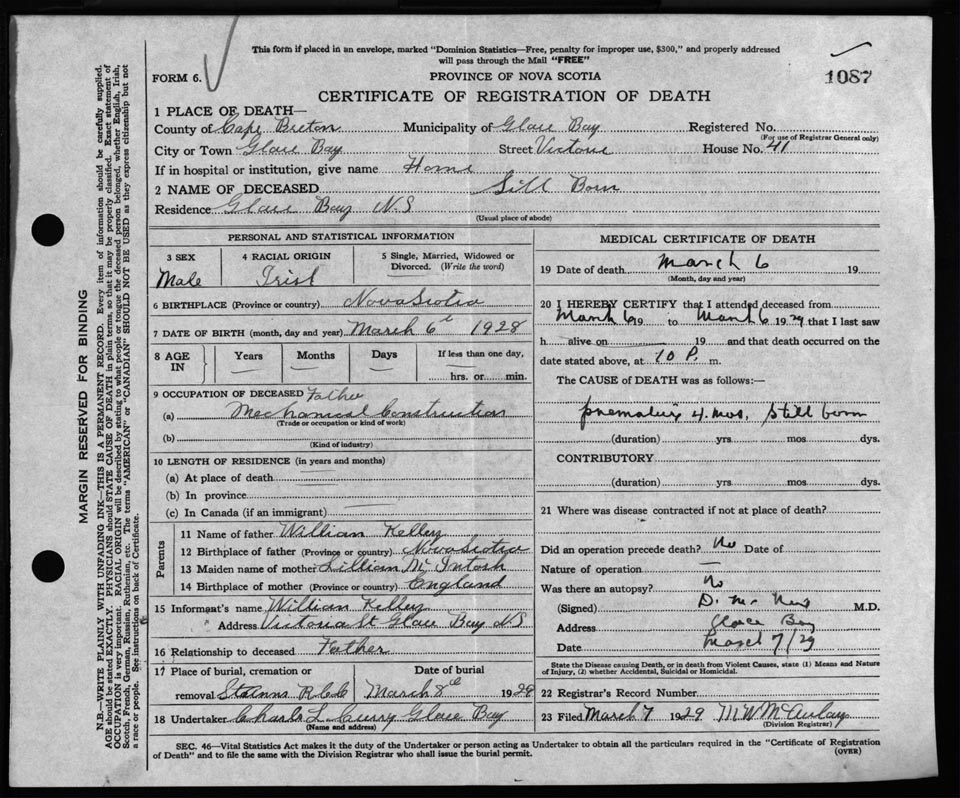 This form if placed in an envelope, marked "Dominion Statistics—Free, penalty for improper use, $300," and properly addressed
will pass through the Mail "FREE"
FORM 6.
PROVINCE OF NOVA SCOTIA
1087
CERTIFICATE OF REGISTRATION OF DEATH
1 PLACE OF DEATH—
County of Cape Breton Municipality of Glace Bay Registered No.
(For use of Registrar General only)
City or Town Glace Bay Street Victoria House No. 41
If in hospital or institution, give name Home
2 NAME OF DECEASED Still Born
Residence Glace Bay N.S
(Usual place of abode)
PERSONAL AND STATISTICAL INFORMATION
3 SEX Male
4 RACIAL ORIGIN Irish
5 Single, Married, Widowed or Divorced. (Write the word)
6 BIRTHPLACE (Province or country) Nova Scotia
7 DATE OF BIRTH (month, day and year) March 6th 1928
8 AGE IN Years Months Days If less than one day,
hrs. or min.
9 OCCUPATION OF DECEASED Father
(a) Mechanical Construction
(Trade or occupation or kind of work)
(b)
(Kind of industry)
10 LENGTH OF RESIDENCE (in years and months)
(a) At place of death
(b) In province
(c) In Canada (if an immigrant)
Parents
11 Name of father William Kelley
12 Birthplace of father (Province or country) Nova Scotia
13 Maiden name of mother Lillian McIntosh
14 Birthplace of mother (Province or country) England
15 Informant's name William Kelley
Address Victoria St Glace Bay N.S
16 Relationship to deceased Father
17 Place of burial, cremation or Date of burial
removal St Anns March 8th 1929
18 Undertaker Charles L Curry Glace Bay
(Name and address)
MEDICAL CERTIFICATE OF DEATH
19 Date of death March 6 19
(Month, day and year)
20 I HEREBY CERTIFY that I attended deceased from
March 6 19 to March 6 1929 that I last saw
h alive on 19 and that death occurred on the
date stated above, at 10 P. m.
The CAUSE of DEATH was as follows:—
4. mos. Still born
(duration) yrs mos dys.
CONTRIBUTORY
(duration) yrs mos dys.
21 Where was disease contracted if not at place of death?
Did an operation precede death? No Date of
Nature of operation —
Was there an autopsy? No
(Signed) M.D.
Address Glace Bay
Date March 7/29
State the Disease causing Death, or in death from Violent Causes, state (1) Means and Nature
of Injury, (2) whether Accidental, Suicidal or Homicidal.
22 Registrar's Record Number
23 Filed March 7 1929 M W McAulay
(Division Registrar)
SEC. 46—Vital Statistics Act makes it the duty of the Undertaker or person acting as Undertaker to obtain all the particulars required in the "Certificate of Registration
of Death" and to file the same with the Division Registrar who shall issue the burial permit.
(OVER)
MARGIN RESERVED FOR BINDING
N.B.—WRITE PLAINLY WITH UNFADING INK—THIS IS A PERMANENT RECORD. Every item of information should be carefully supplied.
AGE should be stated EXACTLY. PHYSICIANS should STATE CAUSE OF DEATH in plain terms, so that it may be properly classified. Exact statement of
OCCUPATION is very important. RACIAL ORIGIN will be described by stating to what people or tongue the deceased person belonged, whether English, Irish,
Scotch, French, German, Russian, Ruthenian, etc. The terms "AMERICAN" or "CANADIAN" SHOULD NOT BE USED as they express citizenship but not
a race or people. See instructions on back of Certificate.